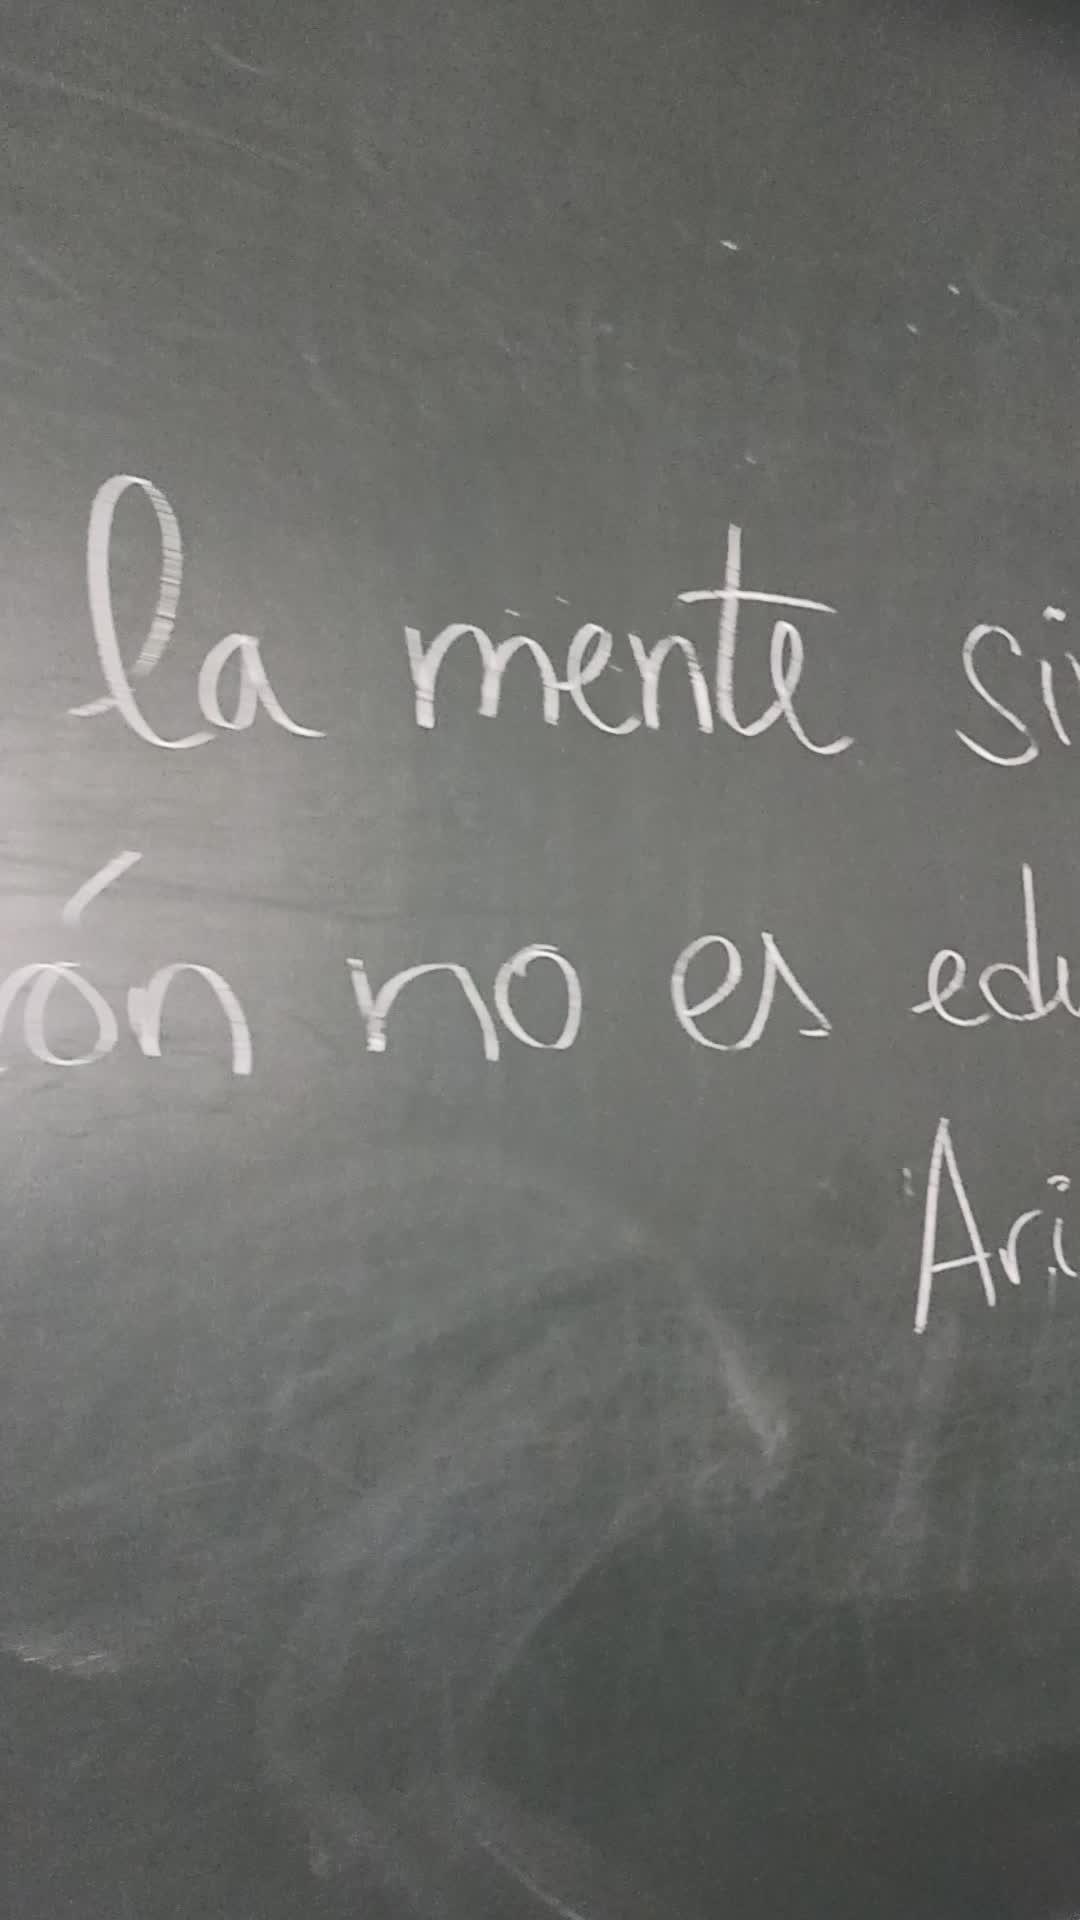 la mente si
ón no es edu
Ari